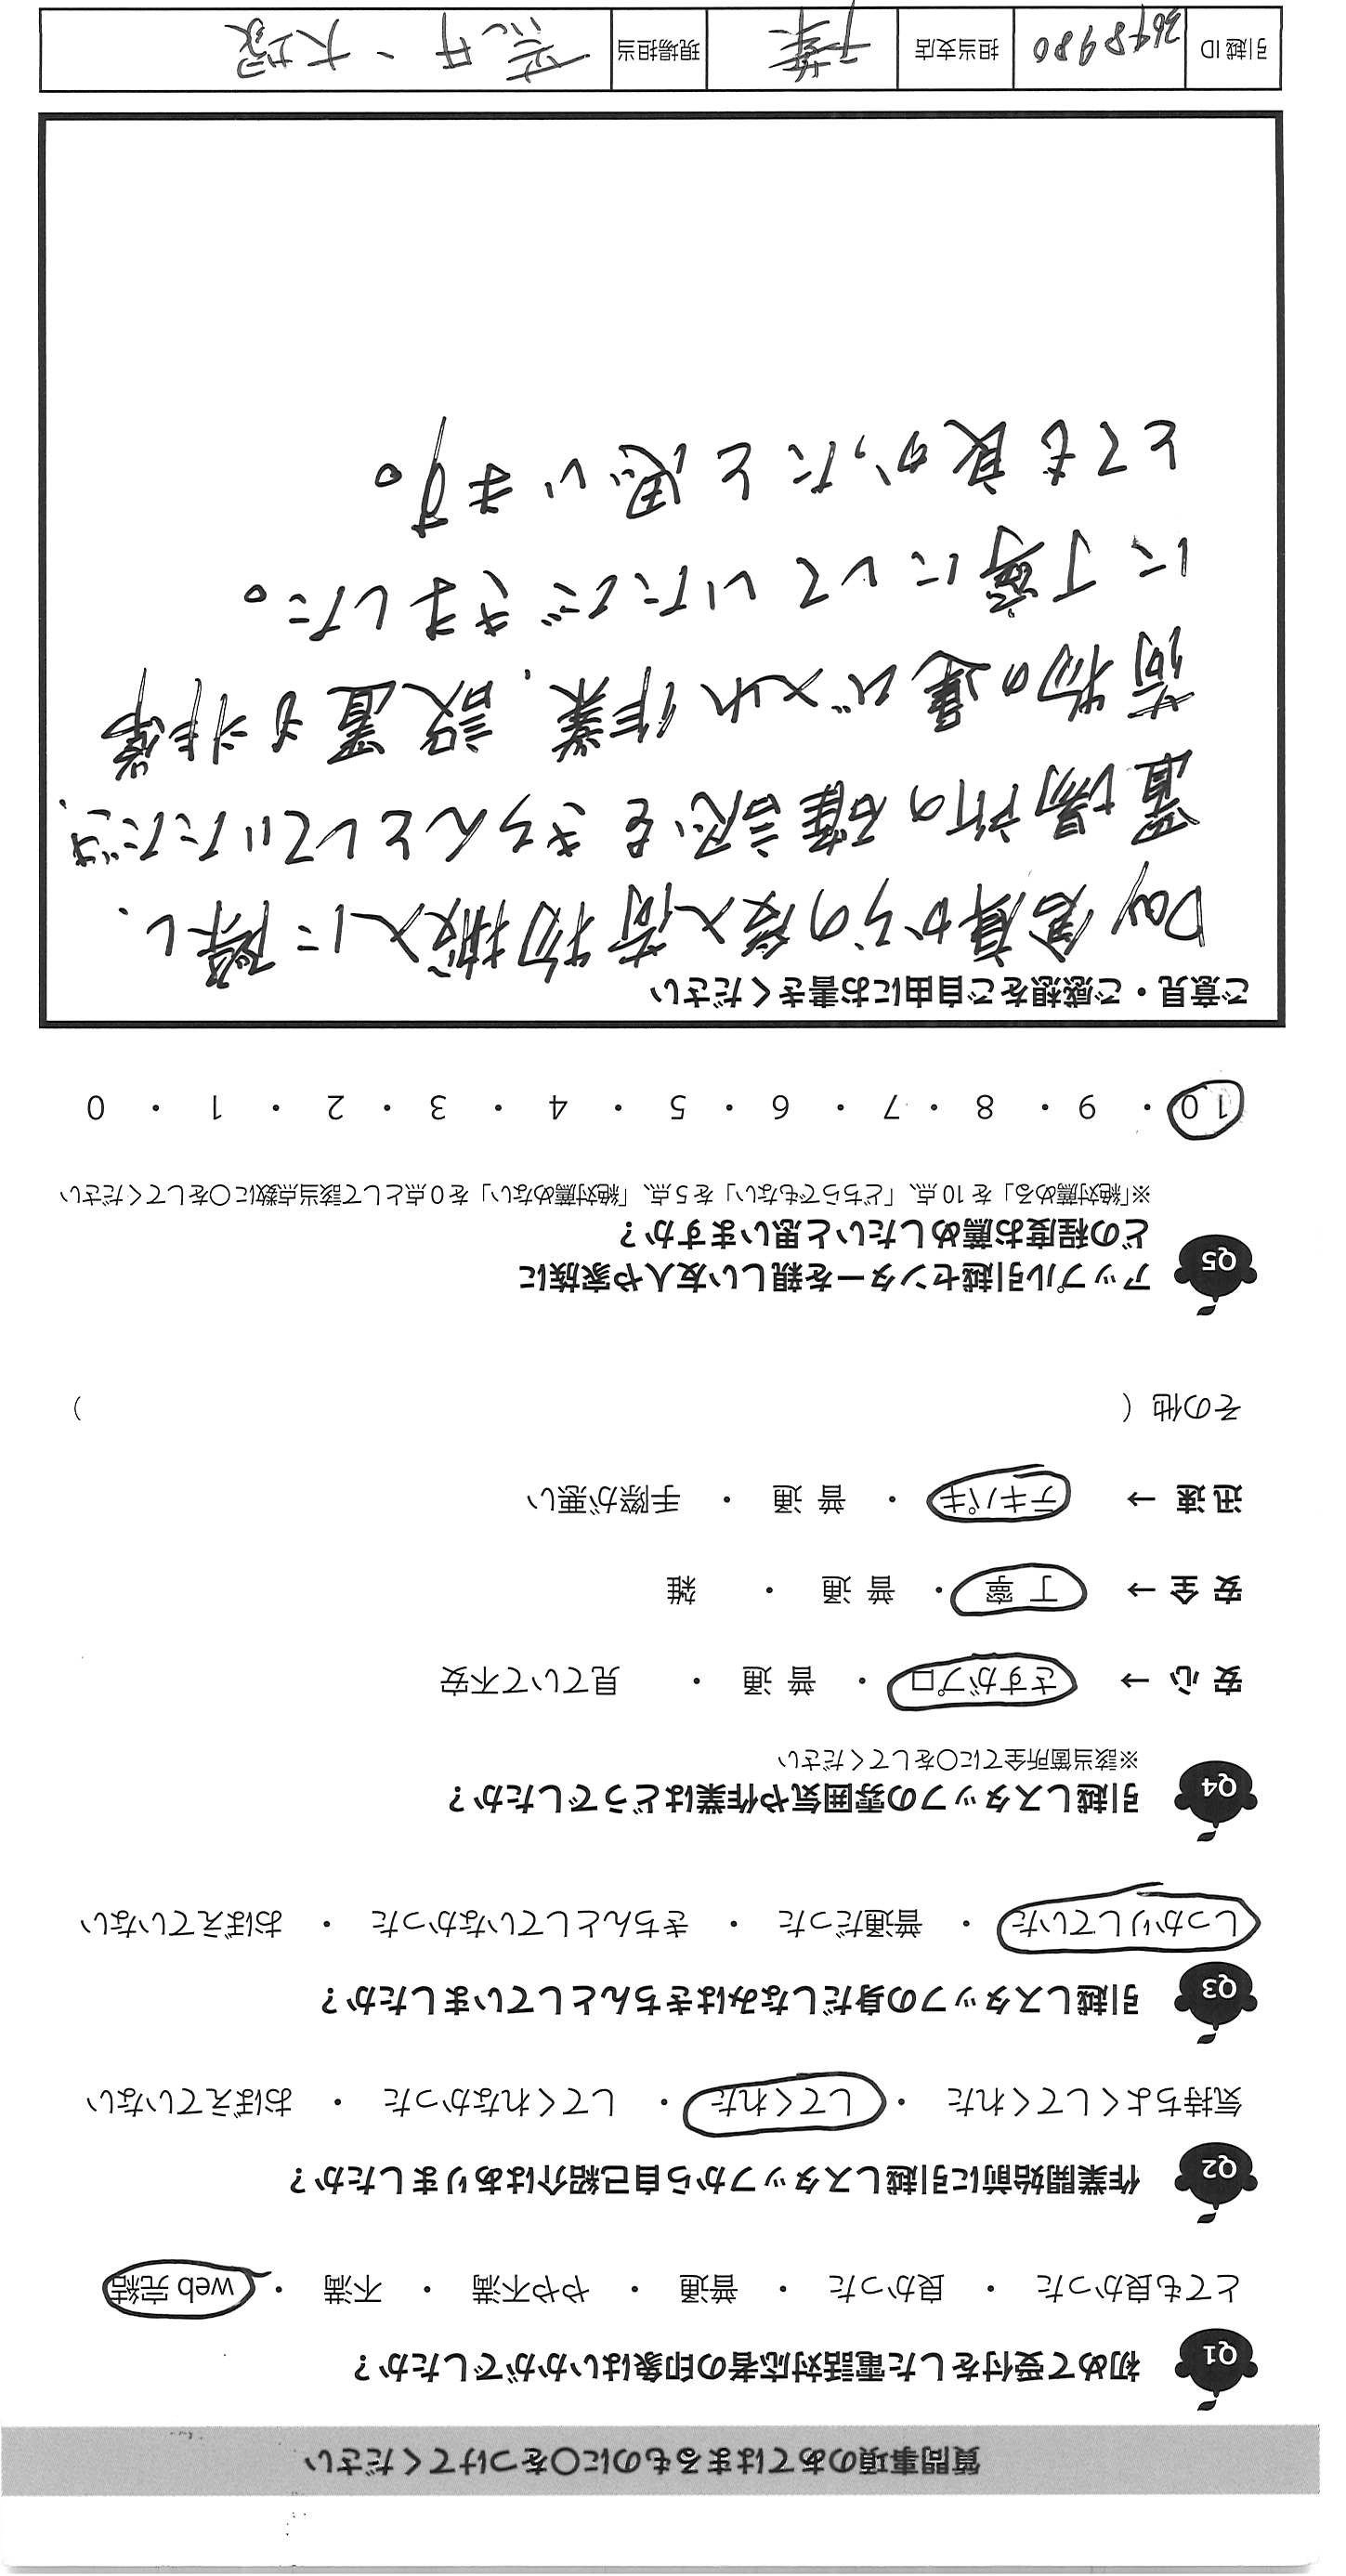 質問事項のあてはまるものに〇をつけてください
Q1 初めて受付をした電話対応者の印象はいかがでしたか？
とても良かった ・ 良かった ・ 普通 ・ やや不満 ・ 不満 ・ web 完結
Q2 作業開始前に引越しスタッフから自己紹介はありましたか？
気持ちよくしてくれた ・ してくれた ・ してくれなかった ・ おぼえていない
Q3 引越しスタッフの身だしなみはきちんとしていましたか？
しっかりしていた ・ 普通だった ・ きちんとしていなかった ・ おぼえていない
Q4 引越しスタッフの雰囲気や作業はどうでしたか？
※該当箇所全てに〇をしてください
安 心 → さすがプロ ・ 普 通 ・ 見ていて不安
安 全 → 丁 寧 ・ 普 通 ・ 雑
迅 速 → テキパキ ・ 普 通 ・ 手際が悪い
その他 （ ）
Q5 アップル引越センターを親しい友人や家族に
どの程度お薦めしたいと思いますか？
※「絶対薦める」を 10 点、「どちらでもない」を 5 点、「絶対薦めない」を 0 点として該当点数に〇をしてください
10 ・ 9 ・ 8 ・ 7 ・ 6 ・ 5 ・ 4 ・ 3 ・ 2 ・ 1 ・ 0
ご意見・ご感想をご自由にお書きください
Day 倉庫からの後入荷物搬入に際し、
置場所の確認をきちんとしていただき、
荷物の運び入れ作業、設置も非常
に丁寧にしていただきました。
とても良かったと思います。
引越 ID 3648980 担当支店 千葉 現場担当 荒井、大塚